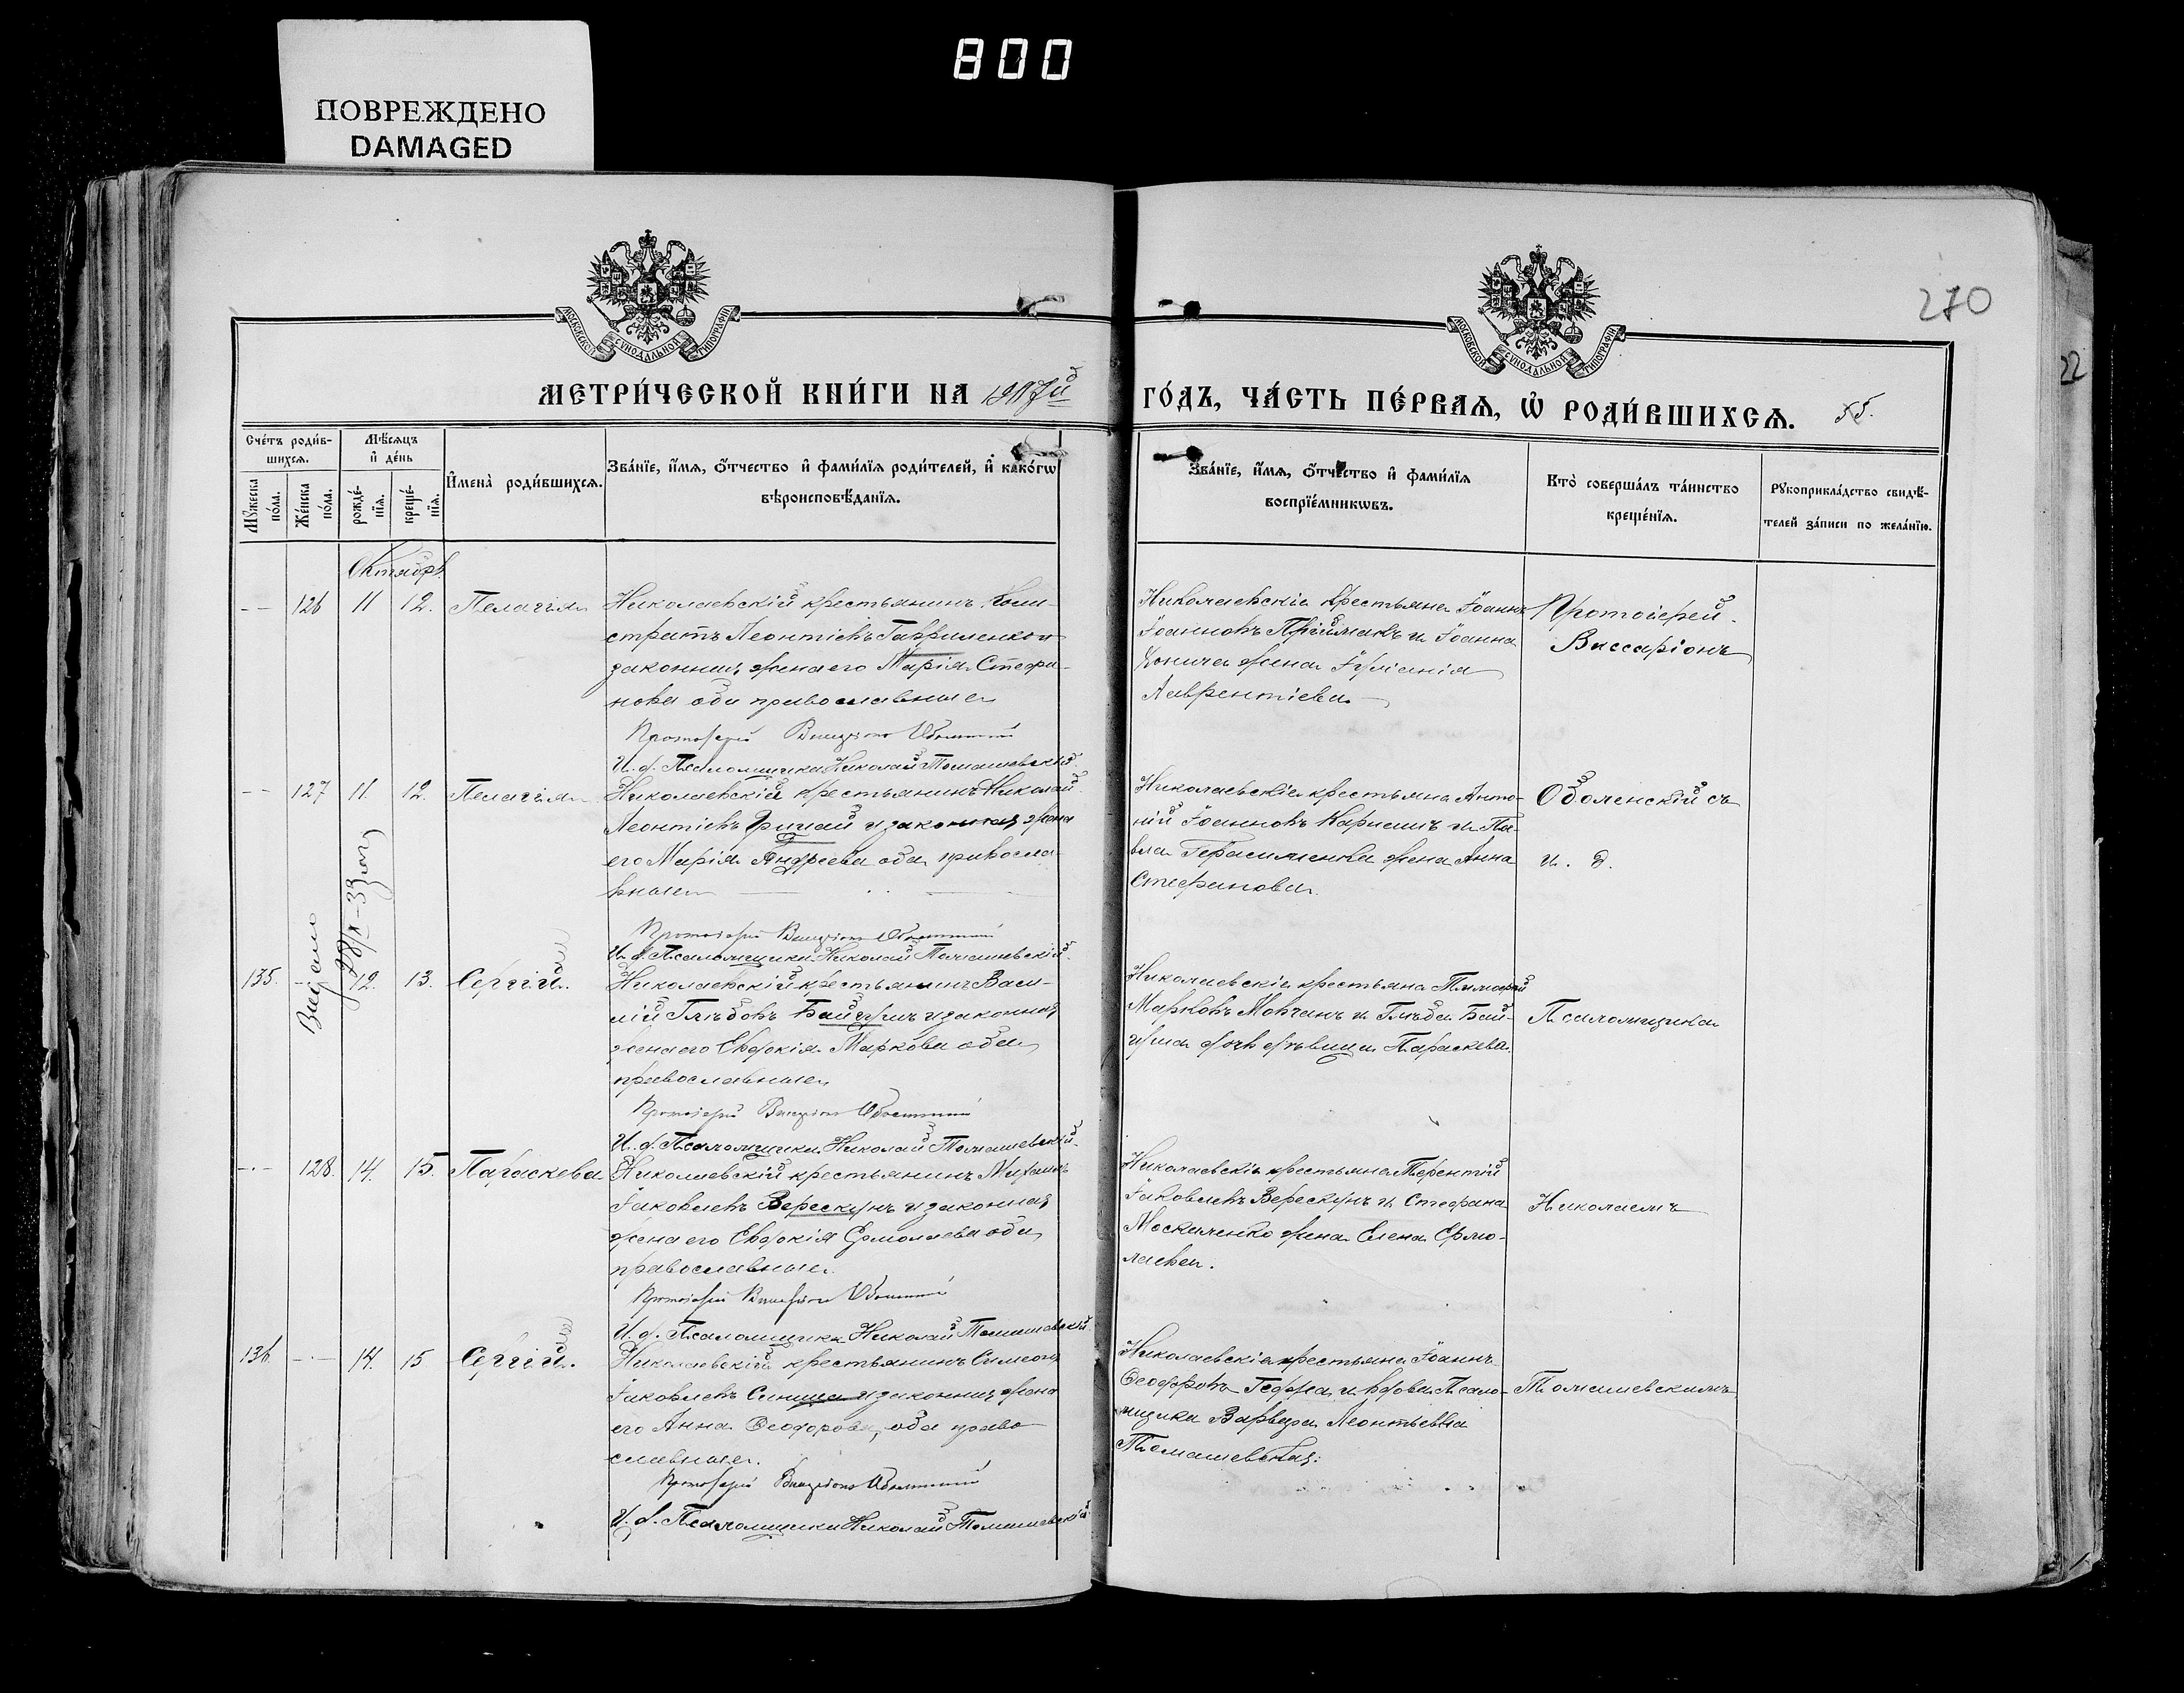 800
ПОВРЕЖДЕНО
DAMAGED
270
22
МОСКОВСКОЙ СѴНОДАЛЬНОЙ ТИПОГРАФІИ
МОСКОВСКОЙ СѴНОДАЛЬНОЙ ТИПОГРАФІИ
МЕТРИ́ЧЕСКОЙ КНИ́ГИ НА 1917й
ГО́ДЪ, ЧА́СТЬ ПЕ́РВАѦ, Ѡ҆ РОДИ́ВШИХСѦ. 55.
Сче́тъ роди́в-
шихсѧ.
Мѣ́сѧцъ
и҆ де́нь
Мꙋ́жеска
по́ла.
Же́нска
по́ла.
рожде́-
нїѧ.
креще́-
нїѧ.
И҆мена̀ роди́вшихсѧ.
Зва́нїе, и҆́мѧ, ѻ҆́тчество и҆ фами́лїѧ роди́телей, и҆ како́гѡ
вѣроисповѣ́данїѧ.
Зва́нїе, и҆́мѧ, ѻ҆́тчество и҆ фами́лїѧ
воспрїе́мникѡвъ.
Кто̀ соверша́лъ та́инство
креще́нїѧ.
Рꙋкоприкла́дство свидѣ́-
телей за́писи по жела́нїю.
Октябрь
-- 126 11 12. Пелагія
Николаевскій крестьянинъ Кали-
стратъ Леонтіевъ Гавриленко и
законная жена его Марія Стефа-
нова оба православные
Протоіерей Виссаріонъ Оболенскій
И. д. Псаломщика Николай Томашевскій.
Николаевскіе крестьяне Іоаннъ
Іоанновъ Приймакъ и Іоанна
жена Іуліанія
Лаврентіева.
Протоіерей
Виссаріонъ
-- 127 11 12. Пелагія
Николаевскій крестьянинъ Николай
Леонтіевъ Грицай и законная жена
его Марія Андреева оба правосла-
вные
Протоіерей Виссаріонъ Оболенскій
И. д. Псаломщика Николай Томашевскій.
Николаевскіе крестьяне Анто-
ній Іоанновъ Карпашъ и Па-
вла Герасименка жена Анна
Стефанова.
Оболенскій съ
и. д.
135. -- 12. 13. Сергій.
Николаевскій крестьянинъ Васи-
лій Глѣбовъ Байгушъ и законная
жена его Евдокія Маркова оба
православные
Протоіерей Виссаріонъ Оболенскій
И. д. Псаломщика Николай Томашевскій.
Николаевскіе крестьяне Тимофей
Марковъ Мовчанъ и Глѣба Бай-
гуша дочь дѣвица Параскева.
Псаломщика
-.- 128. 14. 15. Параскева
Николаевскій крестьянинъ Михаилъ
Іаковлевъ Верескунъ и законная
жена его Евдокія Ермолаева оба
православные.
Протоіерей Виссаріонъ Оболенскій
И. д. Псаломщика Николай Томашевскій.
Николаевскіе крестьяне Терентій
Іаковлевъ Верескунъ и Стефана
Москаленко жена Елена Ермо-
лаева.
Николаемъ
136. -.- 14. 15 Сергій.
Николаевскій крестьянинъ Симеонъ
Іаковлевъ Синица и законная жена
его Анна Феодорова, оба право
славные.
Протоіерей Виссаріонъ Оболенскій
И. д. Псаломщика Николай Томашевскій
Николаевскіе крестьяне Іоаннъ
Феодоровъ и вдова Псало-
мщика Варвара Леонтьевна
Томашевская.
Томашевскимъ